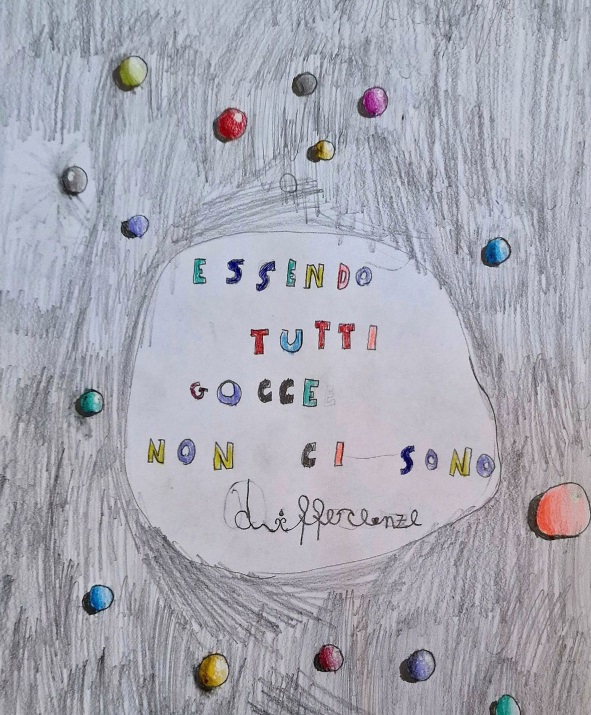 ESSENDO
TUTTI
GOCCE
NON CI SONO
differenze